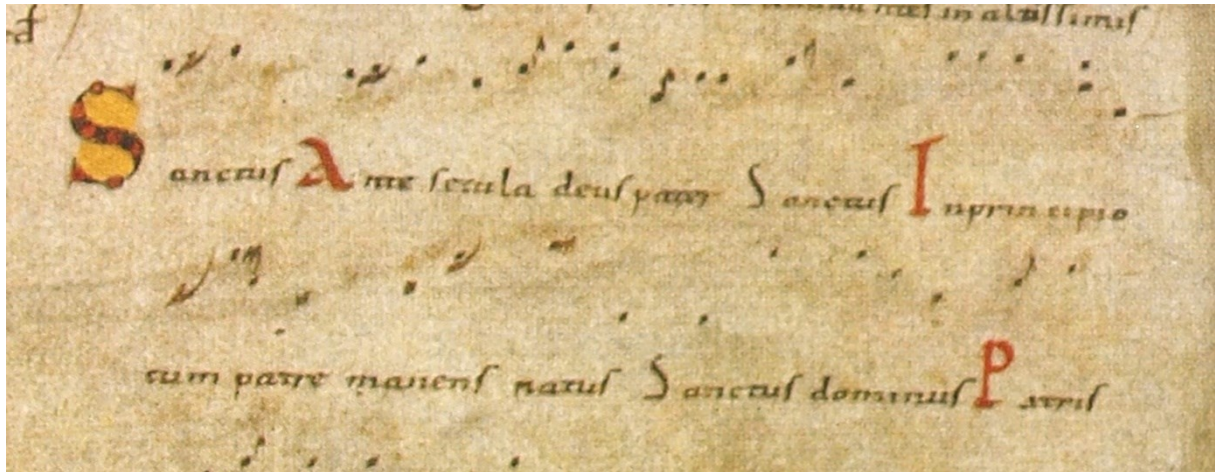 in altissimis
Sanctus Ante secula deus pater Sanctus Inprincipio
cum patre manens natus Sanctus dominus Patris